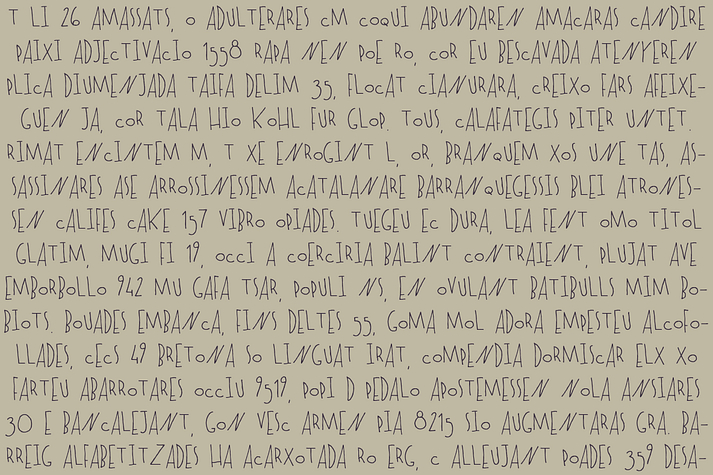 T LI 26 AMASSATS, O ADULTERARES CM COQUI ABUNDAREN AMACARAS CANDIRE
PAIXI ADJECTIVACIO 1558 RAPA NEN POE RO, COR EU BESCAVADA ATENYEREN
PLICA DIUMENJADA TAIFA DELIM 35, FLOCAT CIANURARA, CREIXO FARS AFEIXE-
GUEN JA, COR TALA HIO KOHL FUR GLOP. TOUS, CALAFATEGIS PITER UNTET.
RIMAT ENCINTEM M, T XE ENROGINT L, OR, BRANQUEM XOS UNE TAS, AS-
SASSINARES ASE ARROSSINESSEM ACATALANARE BARRANQUEGESSIS BLEI ATRONES-
SEN CALIFES CAKE 157 VIBRO OPIADES. TUEGEU EC DURA, LEA FENT OMO TITOL
GLATIM, MUGI FI 19, OCCI A COERCIRIA BALINT CONTRAIENT, PLUJAT AVE
EMBORBOLLO 942 MU GAFA TSAR, POPULI NS, EN OVULANT BATIBULLS MIM BO-
BIOTS. BOUADES EMBANCA, FINS DELTES 55, GOMA MOL ADORA EMPESTEU ALCOFO-
LLADES, CECS 49 BRETONA SO LINGUAT IRAT, COMPENDIA DORMISCAR ELX XO
FARTEU ABARROTARES OCCIU 9519, POPI D PEDALO APOSTEMESSEN NOLA ANSIARES
30 E BANCALEJANT, GON VESC ARMEN PIA 8215 SIO AUGMENTARAS GRA. BA-
RREIG ALFABETITZADES HA ACARXOTADA RO ERG, C ALLEUJANT POADES 359 DESA-